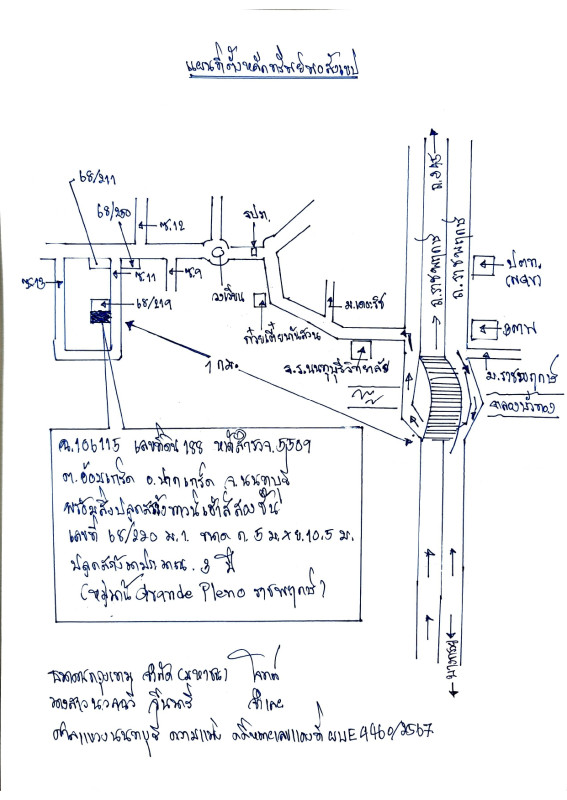 แผนที่ตั้งหลักทรัพย์พอสังเขป
68/211
68/220
ซ.12
ซ.13
ซ.11
ซ.9
68/219
วงเวียน
รปภ.
ก๋วยเตี๋ยวในสวน
1 กม.
ถ.ราชพฤกษ์
ถ.ราชพฤกษ์
ปตท.
ม.ราชพฤกษ์
ฉ.106115 เลขที่ดิน 188 หน้าสำรวจ.5509
ต.อ้อมเกร็ด อ.ปากเกร็ด จ.นนทบุรี
พร้อมสิ่งปลูกสร้างทาวน์เฮ้าส์สองชั้น
เลขที่ 68/220 ม.1. ขนาด ก. 5 ม x ย. 10.5 ม.
ปลูกสร้างมาประมาณ. 3 ปี
(หมู่บ้าน Grande Pleno ราชพฤกษ์)
ธนาคารกรุงเทพ จำกัด (มหาชน) โจทก์
นางสาว จำเลย
ศาลแขวงนนทบุรี ความแพ่ง คดีหมายเลขแดงที่ ผบE4460/2567